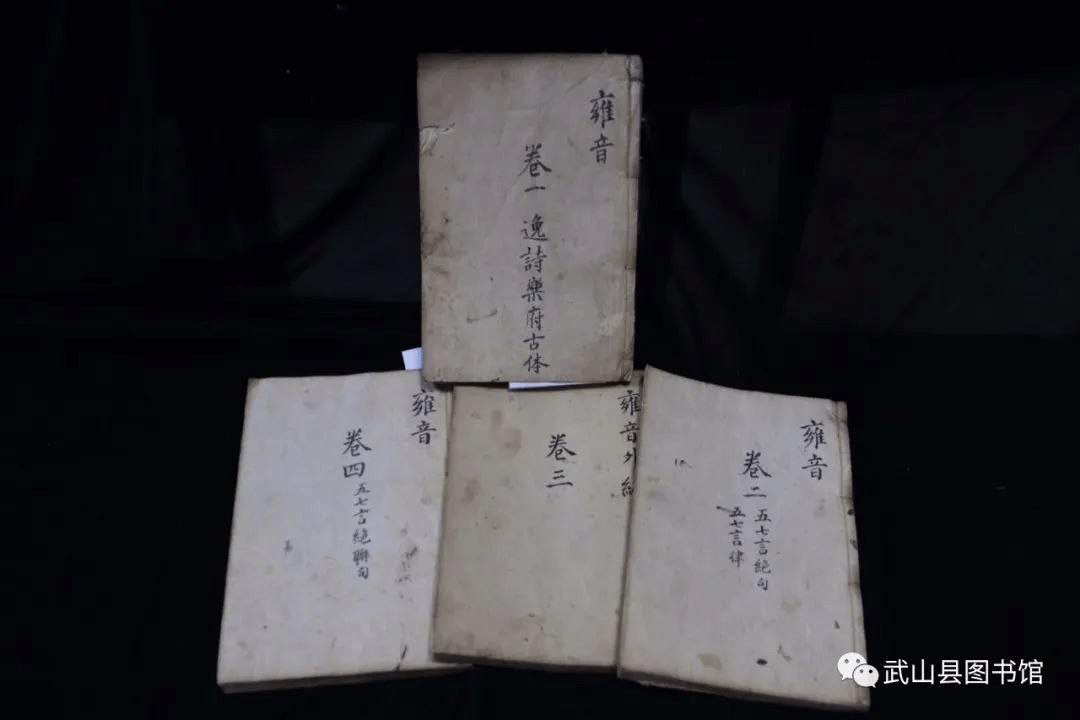 雍音
卷一 逸詩樂府古体
雍音
卷四 五七言絕聯句
雍音外
卷三
雍音
卷二 五七言絕句
五七言律
武山县图书馆